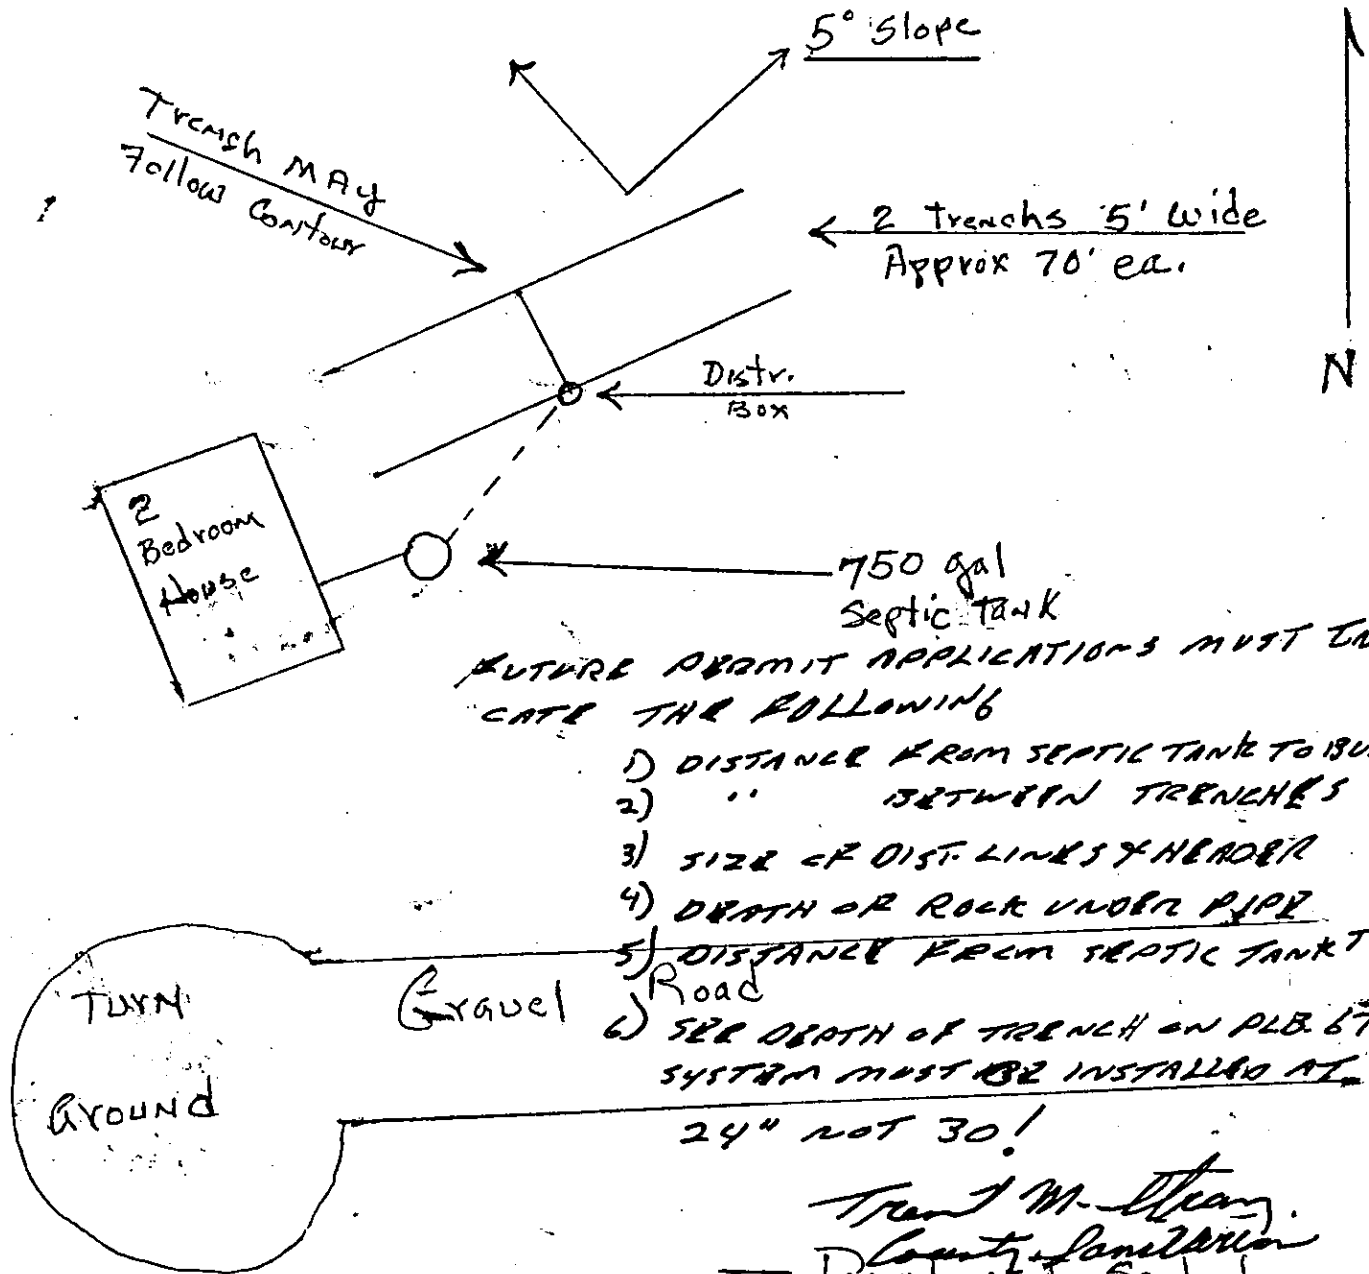 5° Slope
Trensh MAy
Follow Contour
2 trenchs 5' wide
Approx 70' ea.
N
Distr.
Box
2
Bedroom
House
750 gal
Septic Tank
FUTURE PERMIT APPLICATIONS MUST IN
CATE THE FOLLOWING
1) DISTANCE FROM SEPTIC TANK TO BU
2) " BETWEEN TRENCHES
3) SIZE OF DIST. LINES & HEADER
4) DEPTH OF ROCK UNDER PIPE
5) DISTANCE FROM SEPTIC TANK T
TURN
GROUND
Gravel Road
6) SEE DEPTH OF TRENCH ON PLB. 67
SYSTEM MUST BE INSTALLED AT
24" NOT 30!
Trent M.
County Sanitarian